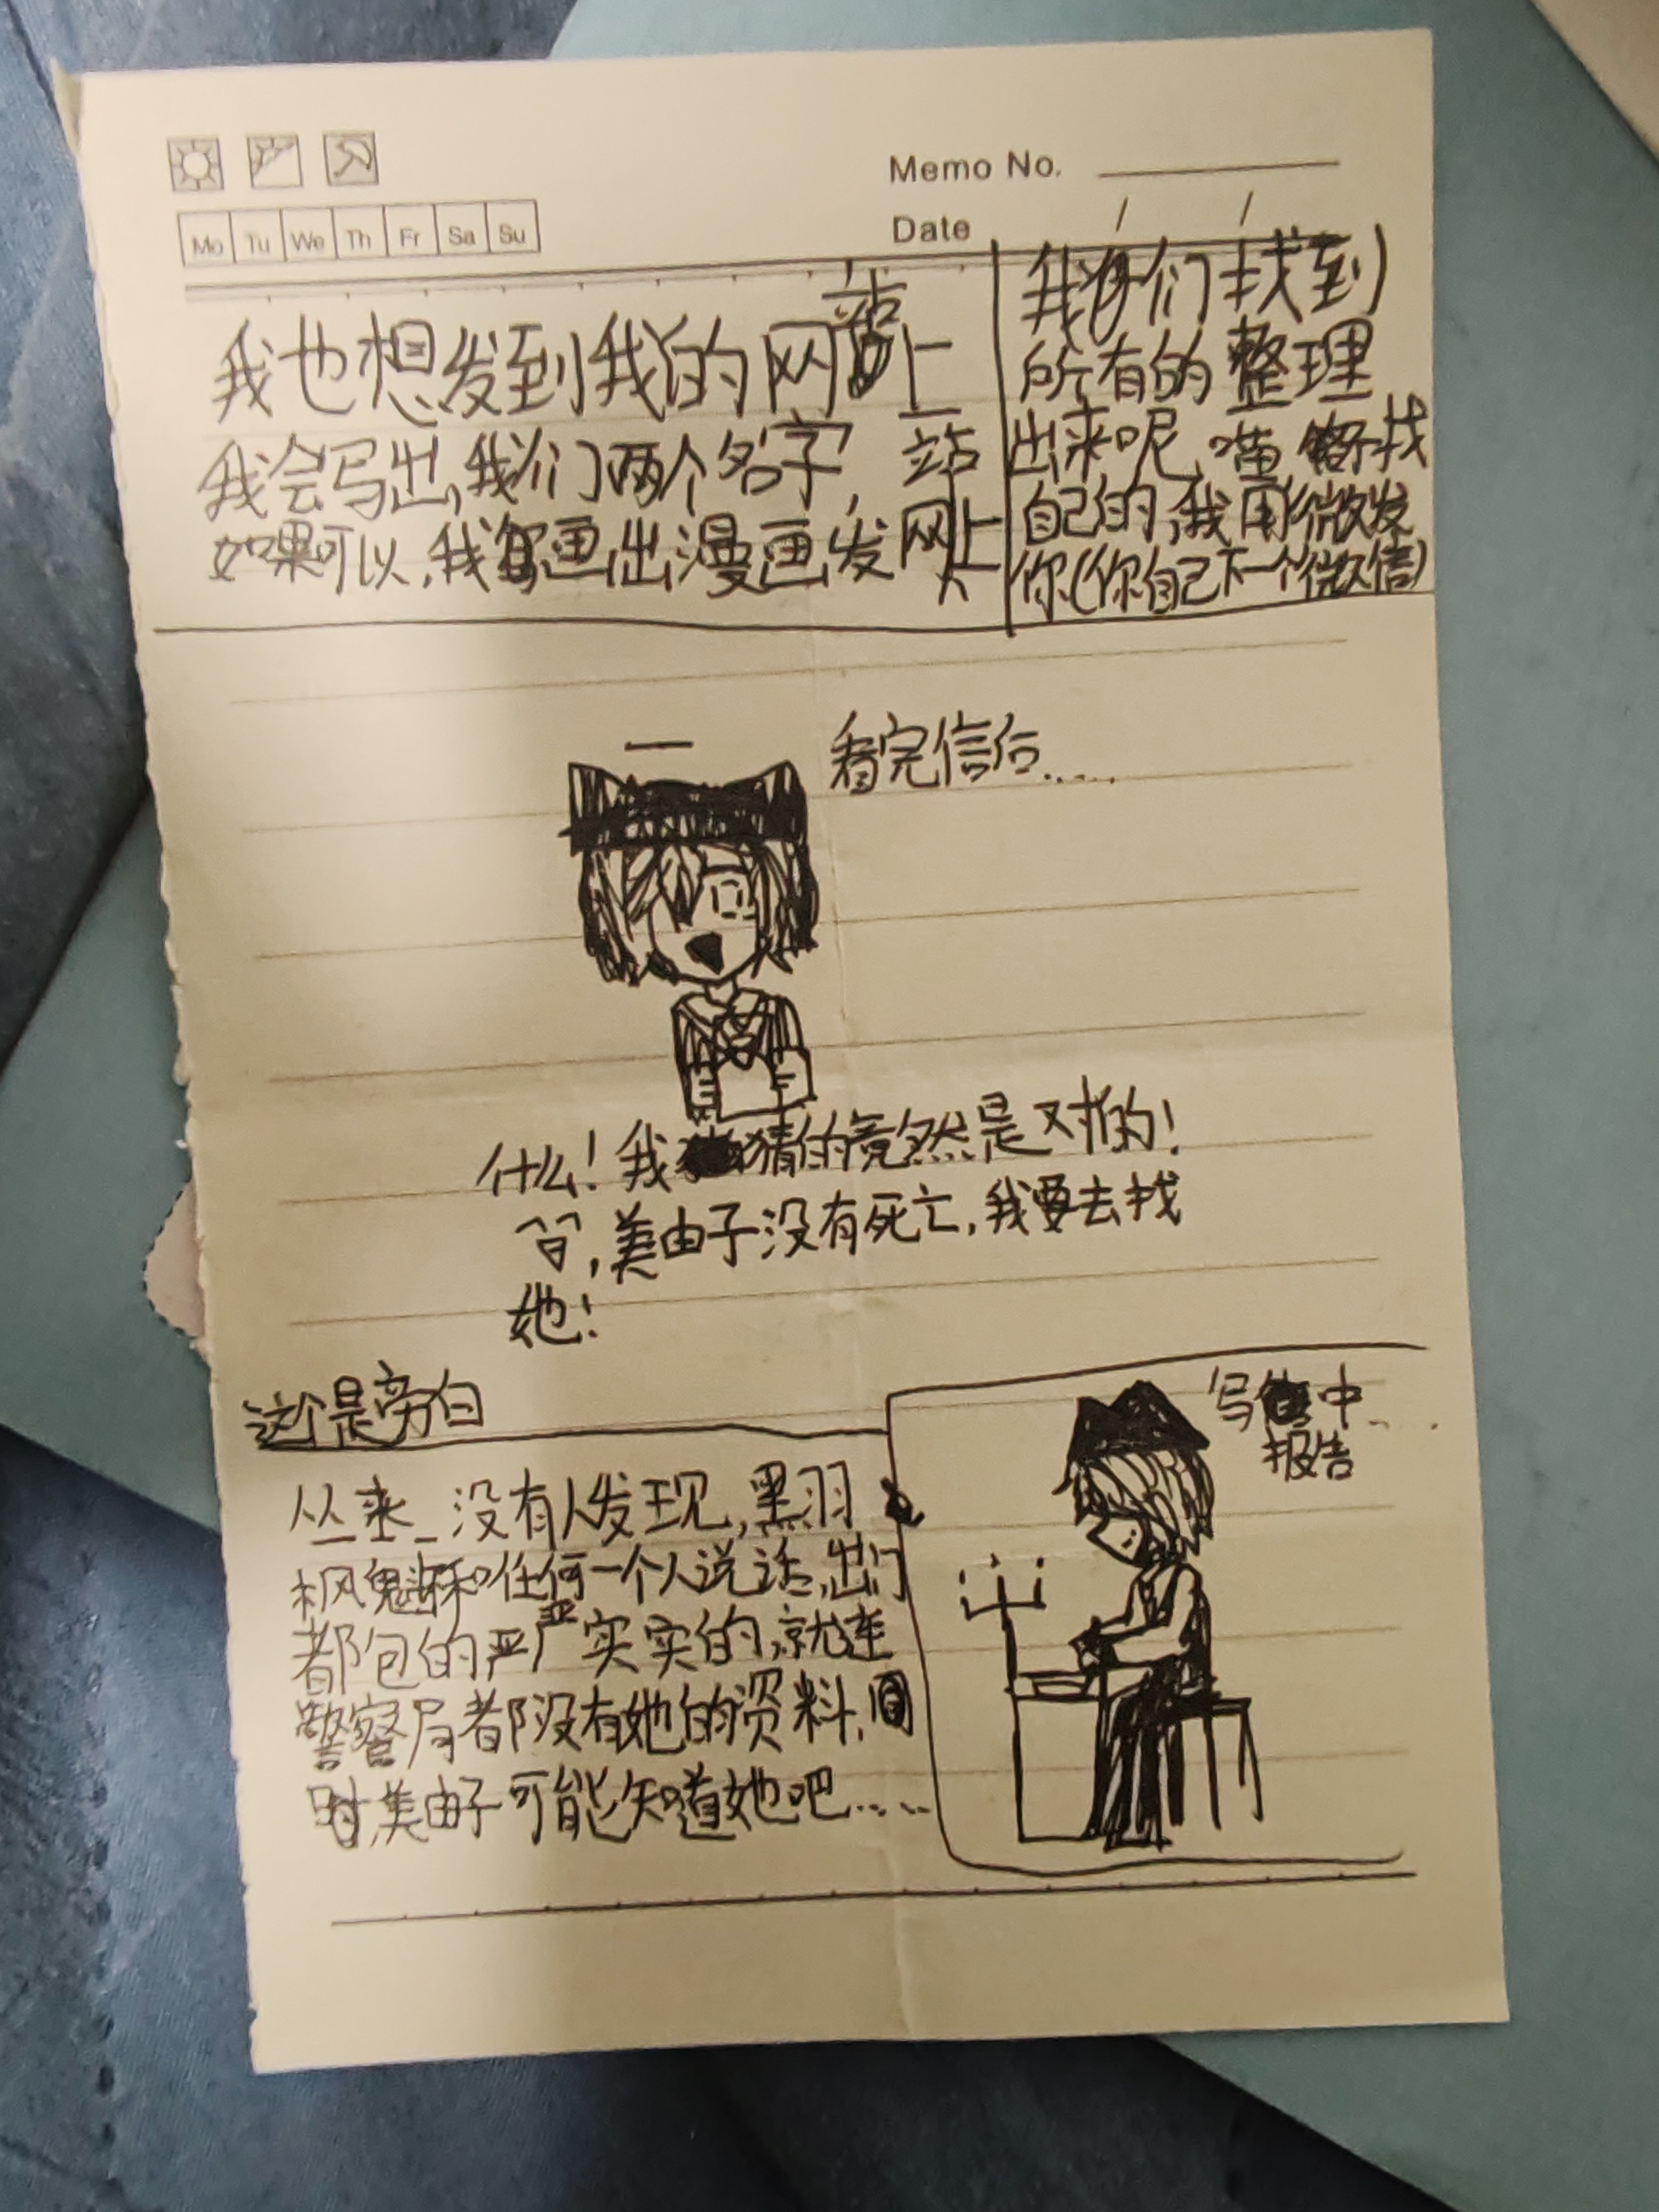 Memo No.
Mo Tu We Th Fr Sa Su
Date / /
我也想发到我的网站上
我会写出,我们两个名字,
如果可以,我画出漫画发网站上
我们找到
所有的整理
出来呢,喵,找
自己的,我用微发
你(你自己下一个微信)
看完信后……
什么!我猜的竟然是对的!
,美由子没有死亡,我要去找
她!
这个是旁白
丛来 没有人发现,黑羽
枫魁和任何一个人说话,出门
都包的严严实实的,就连
警察局都没有她的资料,同
时,美由子可能知道她吧……
写报告中……